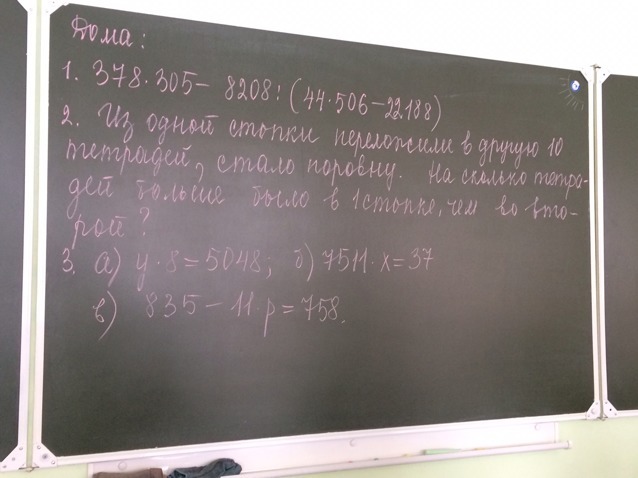 Дома:
1. 378·305 – 8208:(44·506–22188)
2. Из одной стопки переложили в другую 10
тетрадей, стало поровну. На сколько тетра-
дей больше было в 1 стопке, чем во вто-
рой?
3. а) y·8=5048; б) 7511·x=37
в) 835–11·p=758.